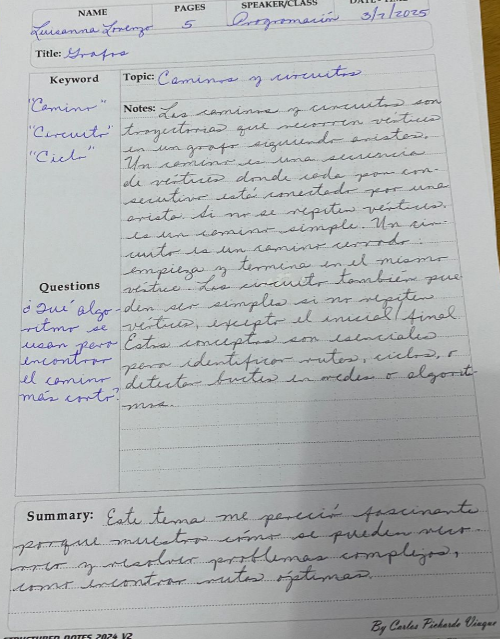 NAME PAGES SPEAKER/CLASS
Luisanna Lorenzo 5 Programación 3/2/2025
Title: Grafos
Keyword
"Camino"
"Circuito"
"Ciclo"
Topic: Caminos y circuitos
Notes: Los caminos y circuitos son
trayectorias que recorren vértices
en un grafo siguiendo aristas.
Un camino es una secuencia
de vértices donde cada par con-
secutivo está conectado por una
arista. Si no se repiten vértices,
es un camino simple. Un cir-
cuito es un camino cerrado:
empieza y termina en el mismo
vértice. Los circuito también pue-
den ser simples si no repiten
vértices, excepto el inicial/final
Estos conceptos son esenciales
para identificar rutas, ciclos, o
detectar bucles en redes o algorit-
mos.
Questions
¿Qué algo-
ritmo se
usan para
encontrar
el camino
más corto?
Summary: Este tema me pareció fascinante
porque muestra cómo se pueden reco-
rrer y resolver problemas complejos,
como encontrar rutas óptimas.
By Carlos Pichardo Vinque
STRUCTURED NOTES 2024 V2